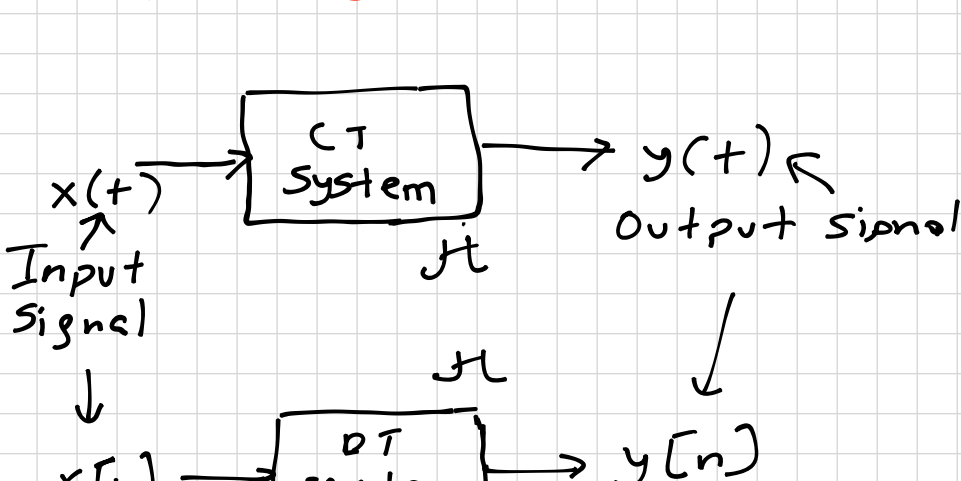 CT
System
x(t)
y(t)
Output signal
H
Input
Signal
H
DT
y[n]